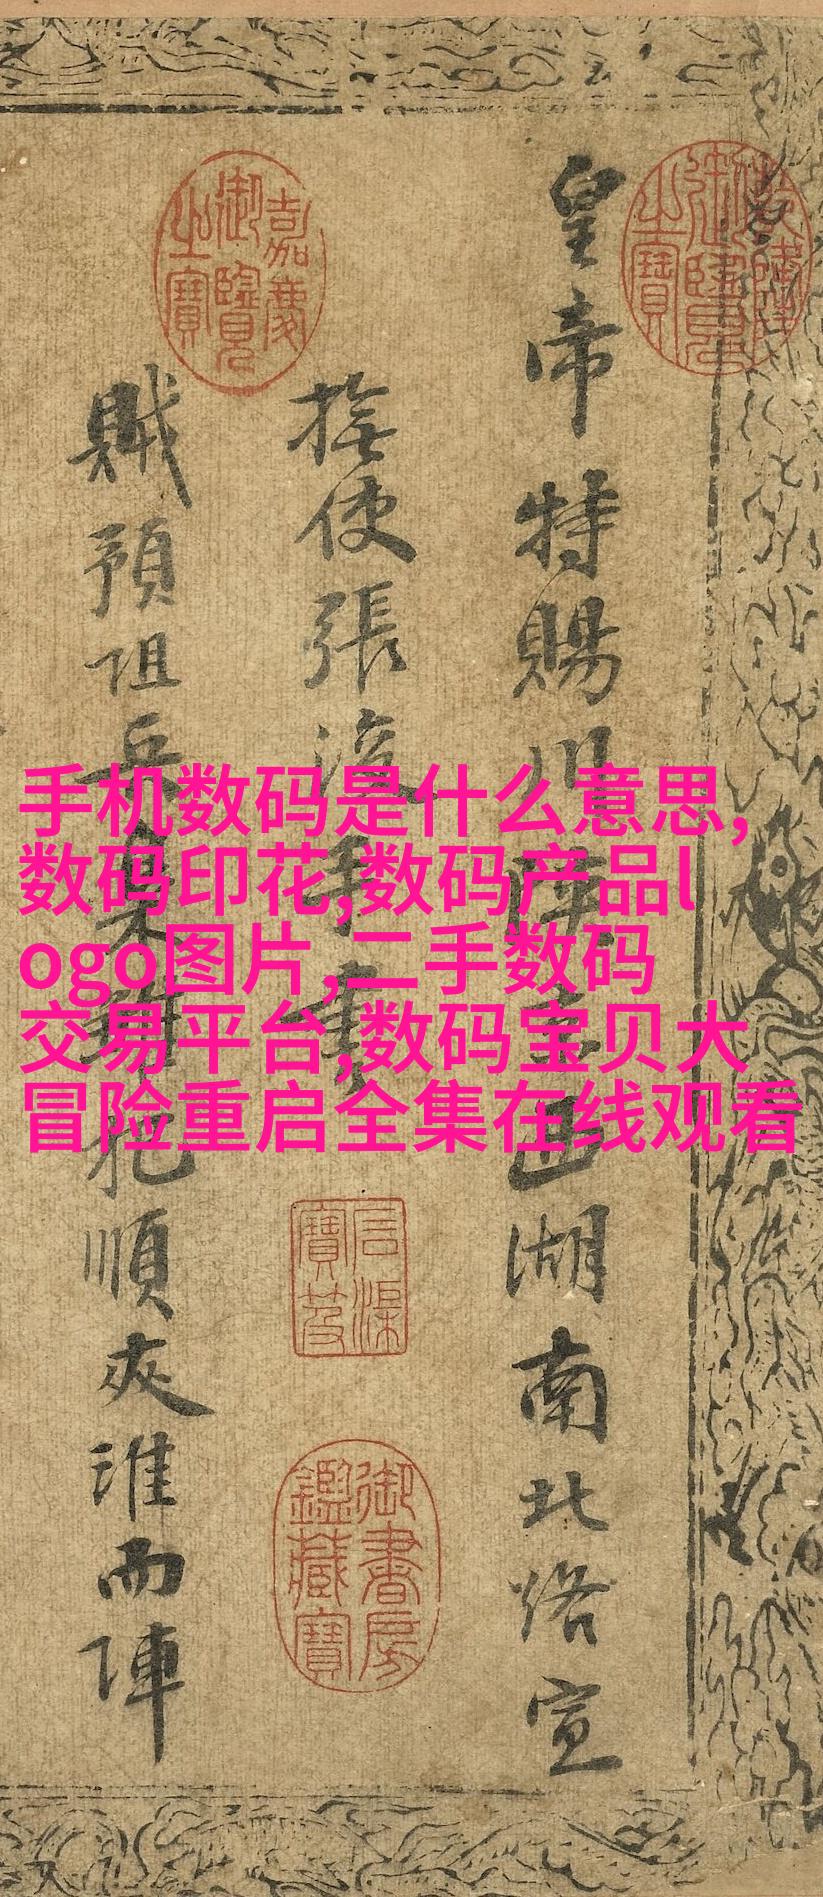 皇帝特賜川陝京西湖南北路宣
撫使張浚手書
賊預阻兵集雜犯順夾淮而陣
乾隆御覽之寶
嘉慶御覽之寶
石渠寶笈
御書房鑑藏寶
手机数码是什么意思,
数码印花,数码产品l
ogo图片,二手数码
交易平台,数码宝贝大
冒险重启全集在线观看